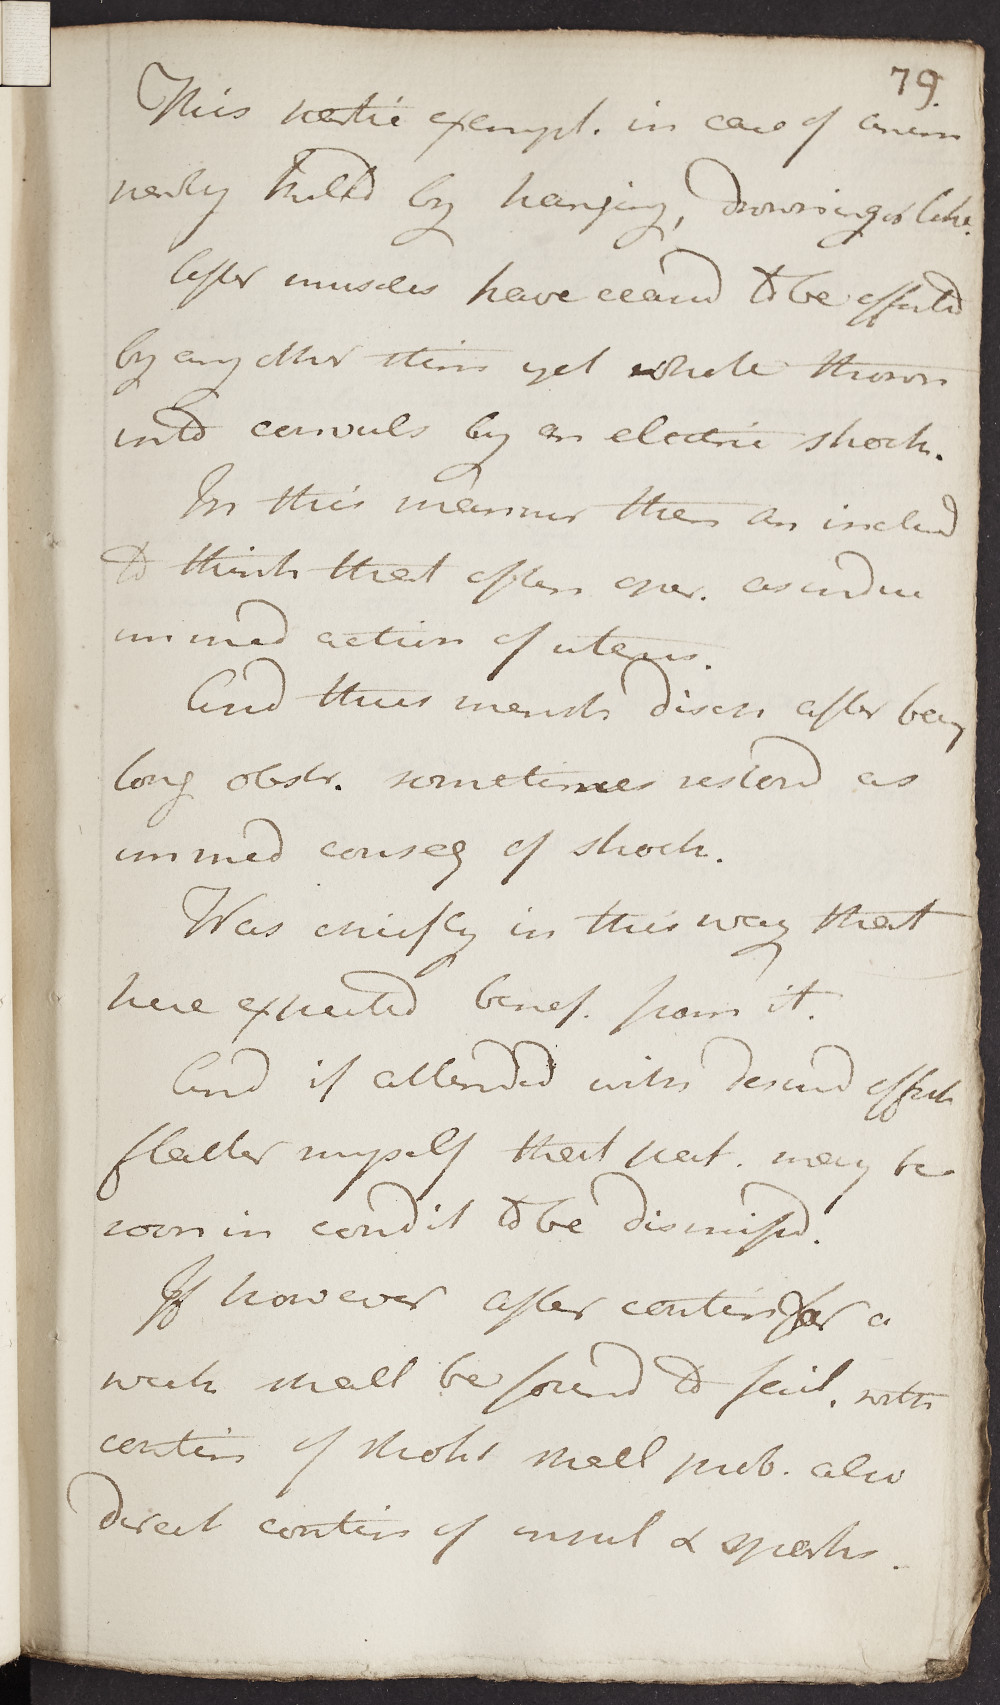 79.
This partic exempl. in case of anim
newly killd by hanging, drowning or like.
After muscles have ceasd to be effectd
by any other stim yet whole thrown
into convuls by an electric shock.
In this manner then am inclind
to think that often oper. as induc
immed action of uterus.
And thus mensts disch after being
long obstr. sometimes restord as
immed conseq of shock.
Was chiefly in this way that
here expected benef. from it.
And if attended with desird effect
flatter myself that pat. may be
soon in condit to be dismissd.
If however after contin for a
week shall be found to fail, with
contin of shocks shall prob. also
direct contin of insul & sparks.